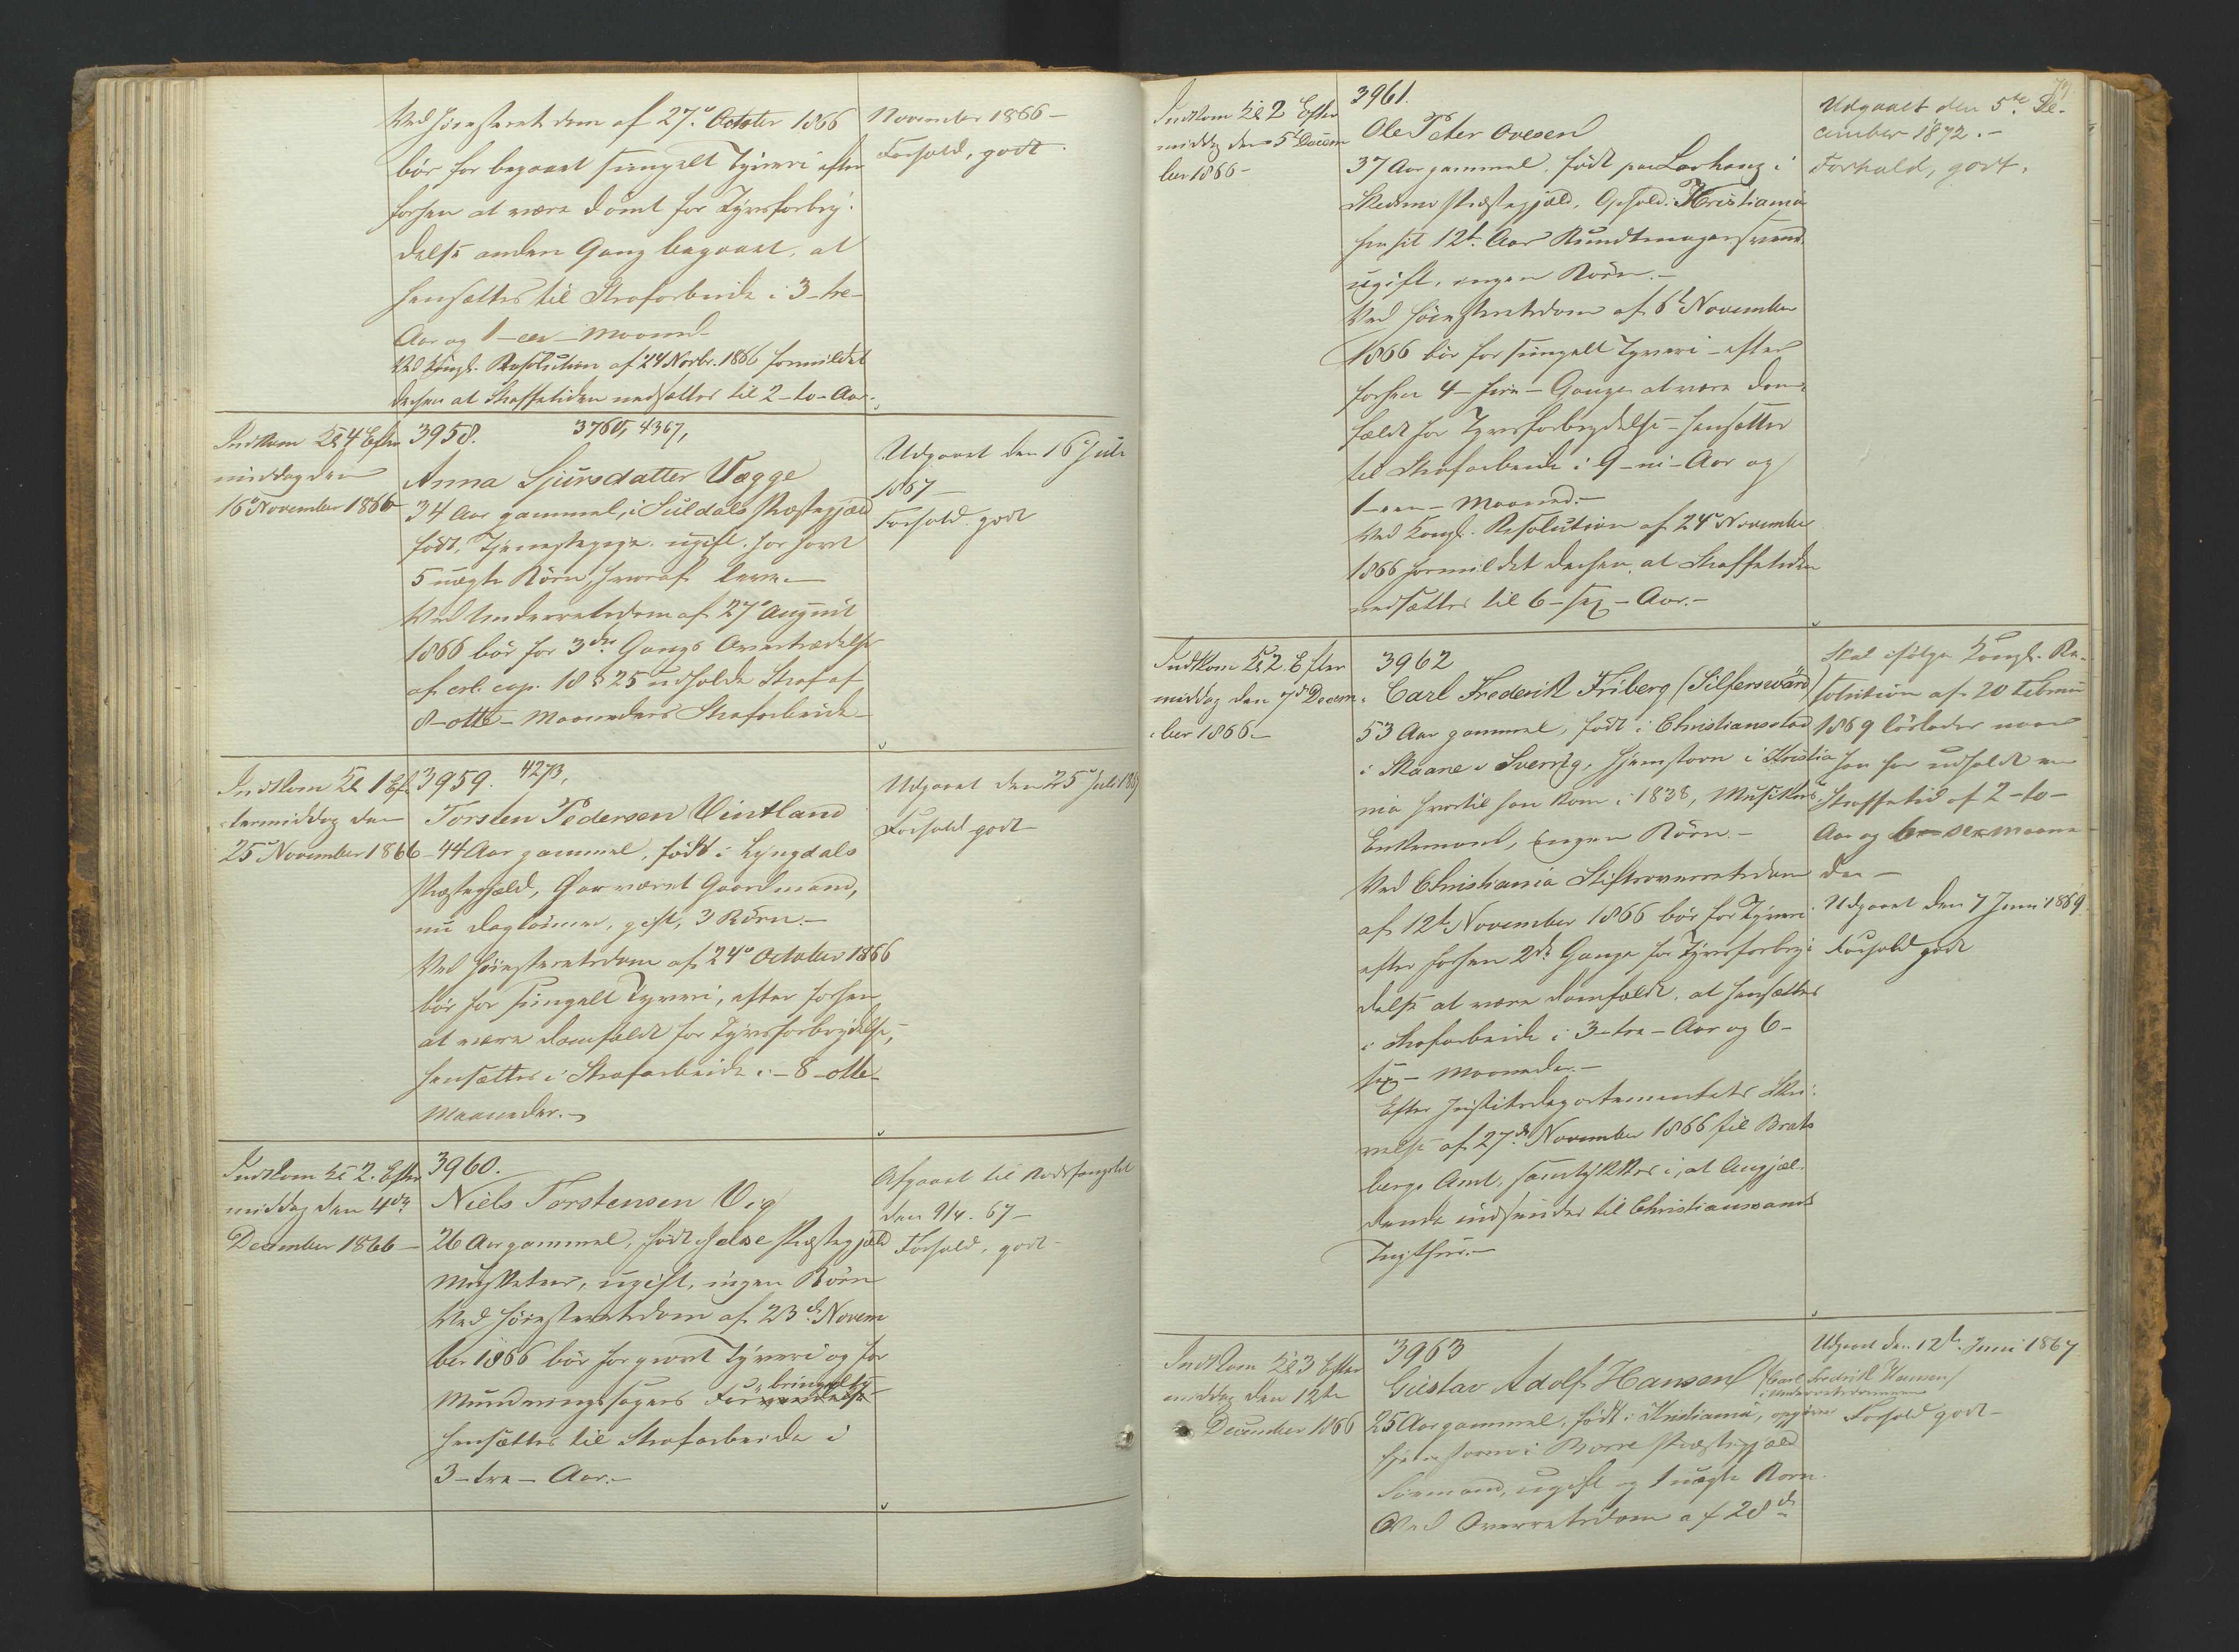 Ved Høiesterets dom af 27de October 1866
bør for begaaet simpelt Tyveri efter
forhen at være dömt for Tyvsforbry-
delse anden Gang begaaet, at
hensættes til Strafarbeide i 3 - tre -
Aar og 1 - een - Maaned
Ved Kongl. Resolution af 24 Novbr. 1866 formildet
derhen at Straffetiden nedsættes til 2 - to - Aar.
November 1866 -
Forhold, godt.
Indkom Kl 4 Efter
middag den
16de November 1866
3958. 3760, 4367,
Anna Sjursdatter Vægge
34 Aar gammel, i Suldals Præstegjæld
född, Tjenestepige. ugift. har havt
5 uægte Börn, hvoraf leve. -
Ved Underretsdom af 27de August
1866 bör for 3die Gangs Overtrædelse
af crl. cap. 18 § 25 udholde Straf af
8 - otte - Maaneders Strafarbeide -
Udgaaet den 16 Juli
1867 -
Forhold godt
Indkom Kl 1 Ef-
termiddag den
25de November 1866
3959. 4273,
Torsten Pedersen Vintland
- 44 Aar gammel, född i Lyngdals
Præstegjæld, har været Gaardmand,
nu Dagleier, gift, 3 Börn. -
Ved Höiesteretsdom af 24de October 1866
bör for simpelt Tyveri, efter forhen
at være domfældt for Tyvsforbrydelse,
hensættes i Strafarbeide i - 8 - otte -
Maaneder. -
Udgaaet den 25de Juli 1867
Forhold godt -
Indkom Kl 2. Efter
middag den 4de
December 1866 -
3960.
Niels Torstensen Vig
26 Aar gammel, född i Præstegjæld
Musketeer, ugift, ingen Börn
Ved Höiesteretsdom af 23de Novem
ber 1866 bör for grovt Tyveri og for
Munderingssagers Forbringelse
hensættes til Strafarbeide i
3 - tre - Aar. -
Afgaaet til Bodsfængslet
den 9/4. 67 -
Forhold, godt -
Indkom Kl 2 Efter
middag den 5te Decem
ber 1866 -
3961.
Ole Peter Ovesen
37 Aar gammel. födt paa i
Skedsmo Præstegjæld. Ophold. Kristiania
fra sit 12te Aar Bundtmagersvend
ugift, ingen Börn. -
Ved Höiesteretsdom af 6te November
1866 bör for simpelt Tyveri - efter
forhen 4 - fire - Gange at være dom-
fældt for Tyvsforbrydelse - hensættes
til Strafarbeide i 9 - ni - Aar og
1 - een - Maaned. -
Ved Kongl. Resolution af 24de November
1866 formildet derhen, at Straffetiden
nedsættes til 6 - sex - Aar. -
Udgaaet den 5te De-
cember 1872. -
Forhold, godt.
Indkom Kl 2. Efter
middag den 7de Decem-
ber 1866. -
3962
Carl Frederik Friberg (Silfersward)
53 Aar gammel, född i Christiansstad
i Skaane i Sverrig, hjemstavn i Kristia
nia hvortil han kom i 1838, Musikus,
Enkemand, Ingen Börn. -
Ved Christiania Stiftsoverretsdom
af 12te November 1866 bör for Tyveri
efter forhen 2de Gange for Tyvsforbry-
delse at være domfældt, at hensættes
i Strafarbeide i 3 - tre - Aar og 6 -
sex - Maaneder. -
Efter Justitsdepartementets Skri-
velse af 27de November 1866 til Brats
bergs Amt, samtykkes i, at Angjæl-
dende indsendes til Christianssands
Tugthus. -
Skal ifölge Kongl. Re-
solution af 20 Februar
1869 löslades naar
han har udholdt en
Straffetid af 2 - to -
Aar og 6 - sex Maane
der -
Udgaaet den 7 Juni 1869.
Forhold godt
Indkom Kl 3 Efter
middag den 12te
December 1866
3963
Gustav Adolf Hansen (Carl Fredrik Hansen)
i Underretsdommen
25 Aar gammel, född i Kristiania, opgiver
hjemstavn i Borre Præstegjæld
Sömand, ugift og 1 uægte Barn.
Ved Overretsdom af 28de
Udgaaet den 12te Juni 1867
Forhold godt -